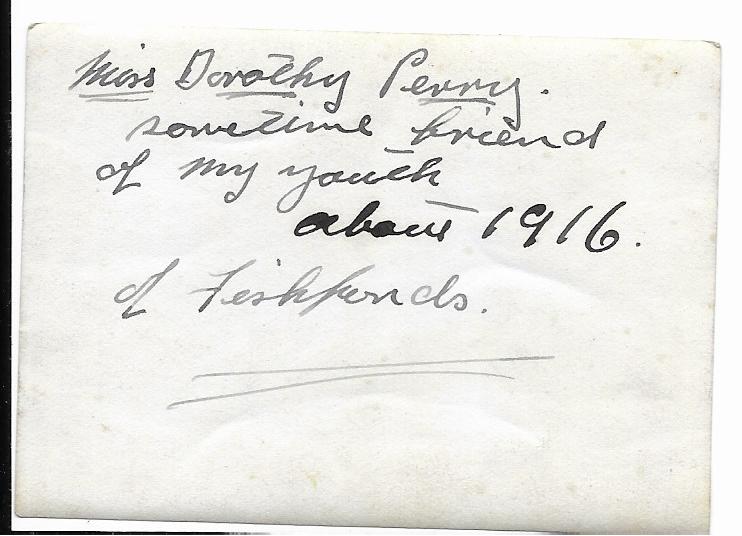 Miss Dorothy Perry.
sometime friend
of my youth
about 1916.
of Fishponds.